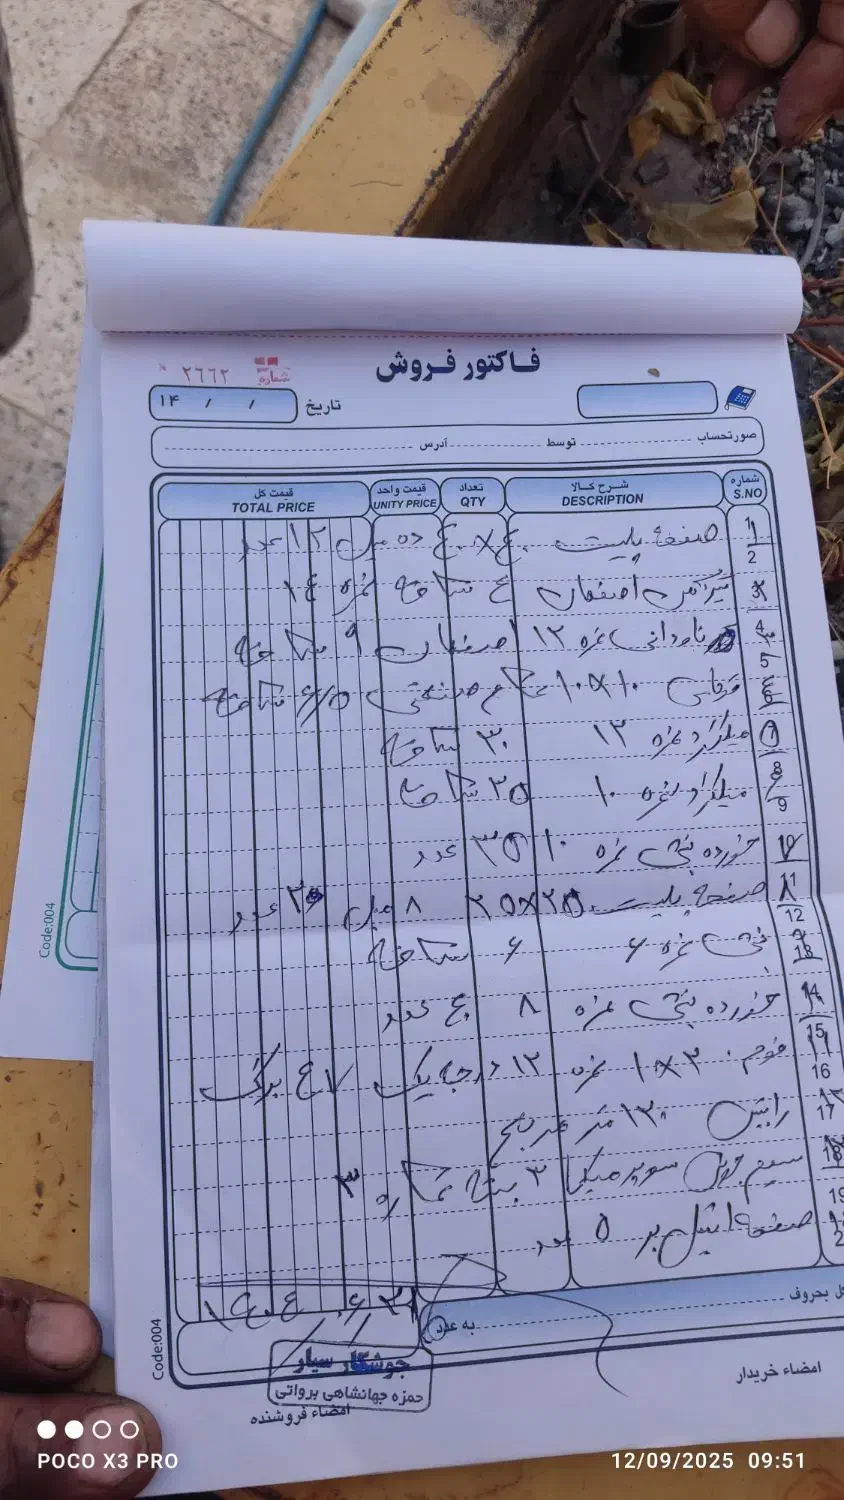 فـاکتور فـروش
شماره ۲۶۶۲
تاریخ / / ۱۴
صورتحساب توسط آدرس
شماره شـرح کـالا تعداد قیمت واحد قیمت کل
S.NO DESCRIPTION QTY UNITY PRICE TOTAL PRICE
1 صفحه پلیت ۴۰×۴۰ ده میل ۱۲ عدد
2
3 تیرآهن اصفهان ۴ شاخه نمره ۱۴
4 ناودانی نمره ۱۲ اصفهان ۹ شاخه
5
قوطی ۱۰×۱۰ صنعتی شاخه
میلگرد نمره ۱۲ ۳۰ شاخه
8 میلگرد نمره ۱۰ ۲۵ شاخه
9
خورده نبشی نمره ۱۰ ۳۵ عدد
11 صفحه پلیت ۲۵×۲۵ ۸ میل عدد
12
13 نبشی نمره ۶ ۶ شاخه
14 خورده نبشی نمره ۸ ۴۰ عدد
15 فوم ۲×۱ نمره ۱۲ درجه یک ۴۷ برگ
16
17 رابیتس ۱۳۰ متر مربع
18 سیم جوش سوپر میکا ۲ بسته شماره ۳
19
صفحه استیل بر ۵ عدد
کل بحروف
به عدد
۱۴۰۴/۰۶/۲۱
جوشکار سیار
حمزه جهانشاهی برواتی
امضاء فروشنده
امضاء خریدار
Code:004
Code:004
POCO X3 PRO
12/09/2025 09:51